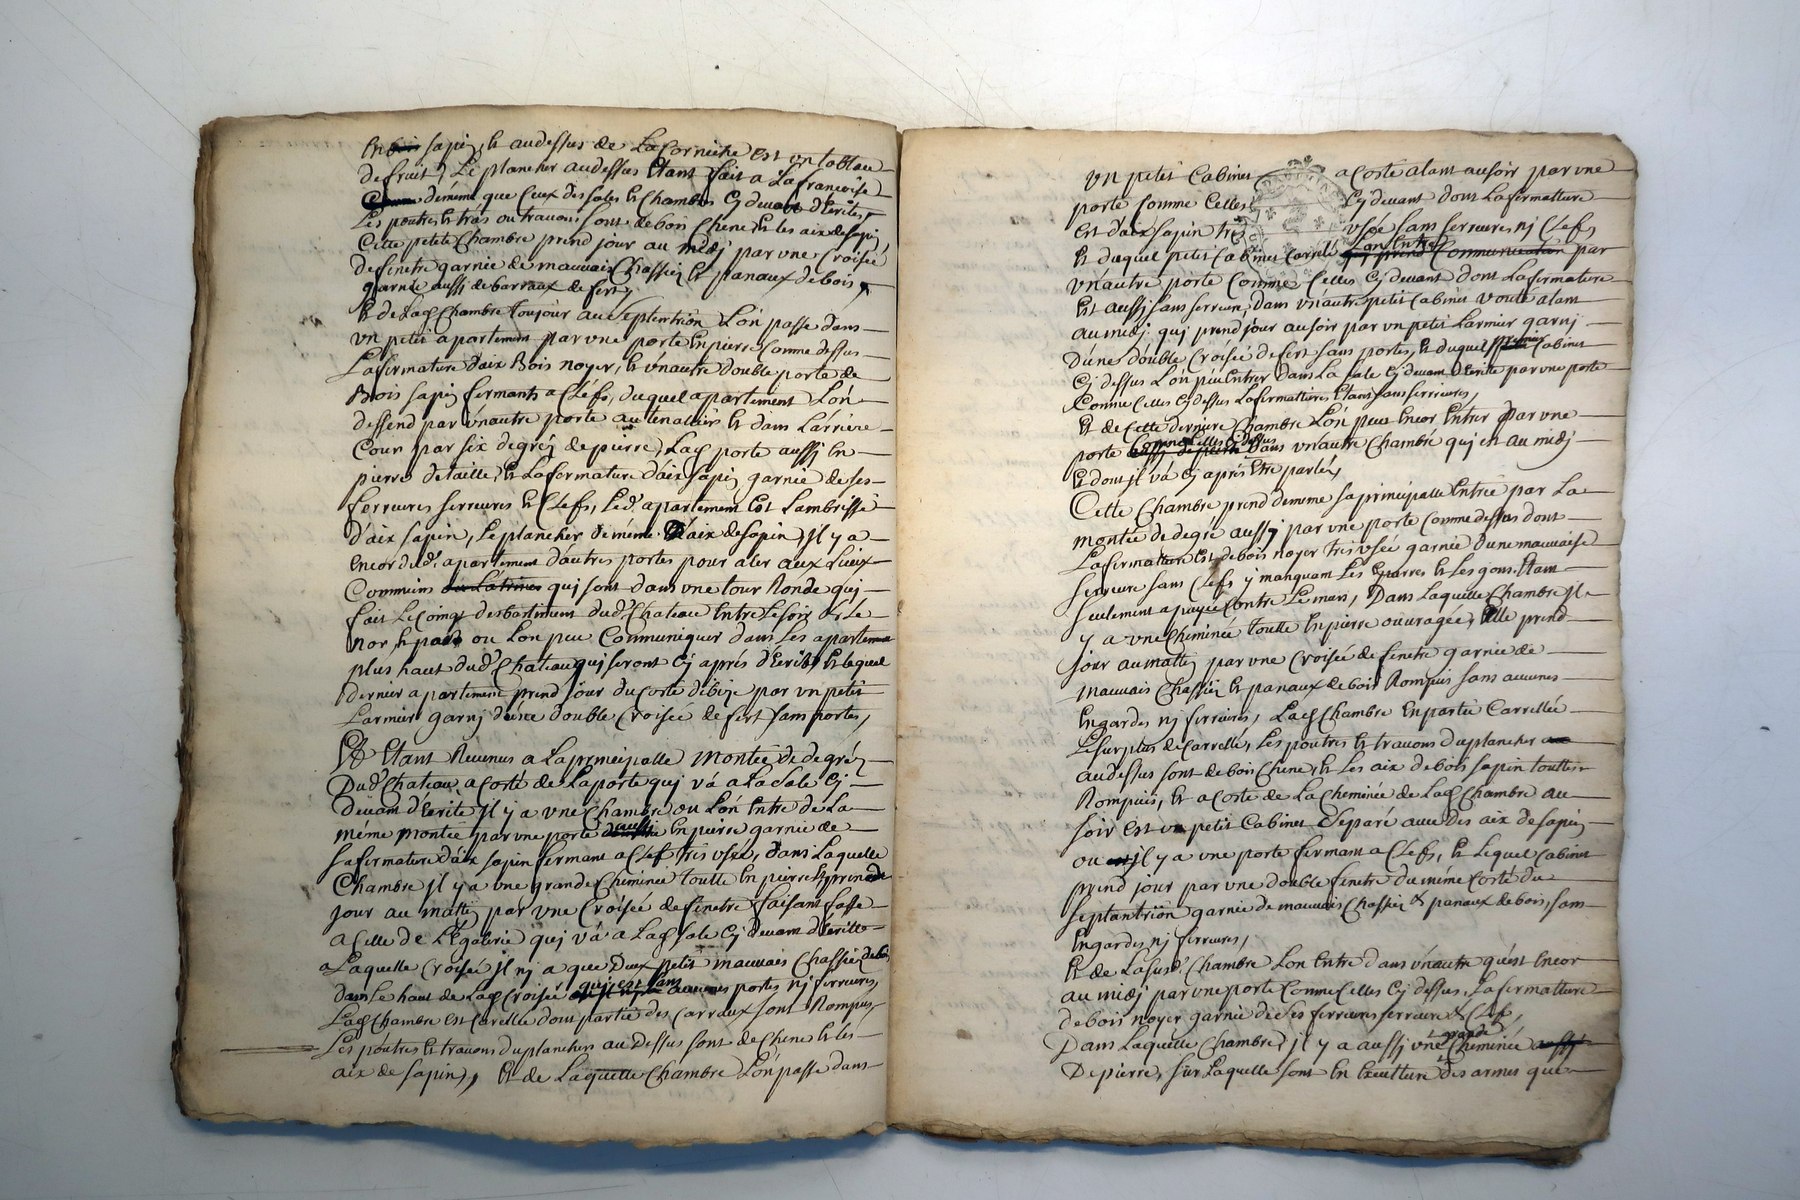 En bois sapin, Et audessus de La Corniche est un tableau
de fruit, Le plancher audessus Etant fait a La françoise
demême que Ceux des sales Et Chambres Cy devant d'Ecrites,
Les poutres Et tras ou travons sont de bois Chene, Et les aix de sapin,
Cette petite Chambre prend jour au midj par vne Croisée
de finetre garnie de mauvais Chassier Et panaux de bois,
garnie aussj de barraux de fert,
Et de Lad. Chambre toujour au septentrion L'on passe dans
vn petit apartement par vne porte En pierre Comme dessus
La firmature d'aix Bois noyer, Et vnautre double porte de
Bois sapin fermants a Cléfs, duquel apartement L'on
dessend par vnautre porte au tenallier Et dans L'arriere
Cour par six degréz de pierre, Lad. porte aussj En
pierre detaille, Et La formature d'aix sapin garnie de ses
ferrures serrures Et Cléfs, Led. apartement Est Lambrissé
D'aix sapin, Le plancher de même D'aix de sapin, Il y a
Encor dud. apartement d'autres portes pour aler aux Lieux
Communs ou Latrines quj sont dans vne tour Ronde quj
fait Le Coing des bastiment dud. Chateau Entre Le soir & Le
nor, Et par ou L'on peu Communiquer dans Les apartemen
plus haut dud. Chateau quj seront Cy aprés d'Ecrits, Et Lequel
dernier apartement prend jour du Costé de bize par vn petit
Larmier garnj d'une double Croisée de fert sans portes,
Et Etant Revenus a La principalle montée de degréz
Dud. Chateau, a Costé de La porte quj và a La sale Cy
devant d'Ecrite Il y a vne Chambre ou L'on Entre de La
même montée par vne porte aussi En pierre garnie de
sa firmature d'aix sapin fermant a Cléf très vsée, dans Laquelle
Chambre Il y a vne grande Cheminée toutte En pierre Et prend
jour au mattin par vne Croisée de finetre faisant fasse
a Celle de L'Egalerie quj và a Lad. sale Cy devant d'Ecritte
a Laquelle Croisée Il nj a que Deux petit mauvais Chassier de bois
dans Le haut de Lad. Croisée qui est sans aucunes portes nj ferrures,
Lad. Chambre est Carellée dont partie des Carraux sont Rompus,
Les poutres Et travons du plancher au Dessus sont de Chene Et Les
aix de sapin, Et de Laquelle Chambre L'on passe dans
vn petit Cabinet a Costé alant au soir par vne
porte Comme Celles Cy devant dont La firmatture
Est d'aix sapin tres vsée sans serrures nj Cléfs
Et duquel petit Cabinet Carrelé L'on Entre Communication par
vn autre porte Comme Celles Cy devant dont La firmature
Est aussj sans serrure, dans vn autre petit Cabinet vouté alant
au midj quj prend jour au soir par vn petit Larmier garnj
D'une double Croisée de fert sans portes, Et duquel premier Cabinet
Cy dessus L'on peu Entrer Dans La sale Cy devant d'Ecrite par vne porte
Comme Celles Cy dessus La firmattures Etant sans serrures,
Et de Cette derniere Chambre L'on peut Encor Entrer par vne
porte Comme Celles Cy dessus Dans vn autre Chambre quj est au midj
Et dont Il và Cy aprés Etre parlée,
Cette Chambre prend demême sa principalle Entrée par La
montée de degré aussj par vne porte Comme dessus dont
La firmatture est de bois noyer tres vsée garnie d'une mauvaise
serrure sans Clefs y manquant Les Eparres Et Les gons Etant
seulement apuyée Contre Le mur, Dans Laquelle Chambre Il
y a vne Cheminée toutte En pierre ouvragée, Elle prend
jour au mattin par vne Croisée de finetre garnie de
mauvais Chassier Et panaux de bois Rompus sans aucunes
Engardes nj ferrures, Lad. Chambre En partie Carrellée
Le surplus decarrellé, Les poutres Et travons du plancher
audessus sont de bois Chene, Et Les aix de bois sapin touttes
Rompuës, Et a Costé de La Cheminée de Lad. Chambre au
soir est vn petit Cabinet séparé avec des aix de sapin
ou Il y a vne porte fermant a Cléfs, Et Lequel Cabinet
prend jour par vne double finetre du même Costé du
septantrion garnie de mauvais Chassier & panaux de bois, sans
Engardes nj ferrures,
Et de La susd. Chambre L'on Entre dans vn autre qu'est Encor
au midj par vne porte Comme Celles Cy dessus, La firmatture
de bois noyer garnie de ses ferrures serrure & Cléf,
Dans Laquelle Chambre, Il y a aussj vne grande Cheminée aussj
De pierre, sur Laquelle sont En Exculture des armes que